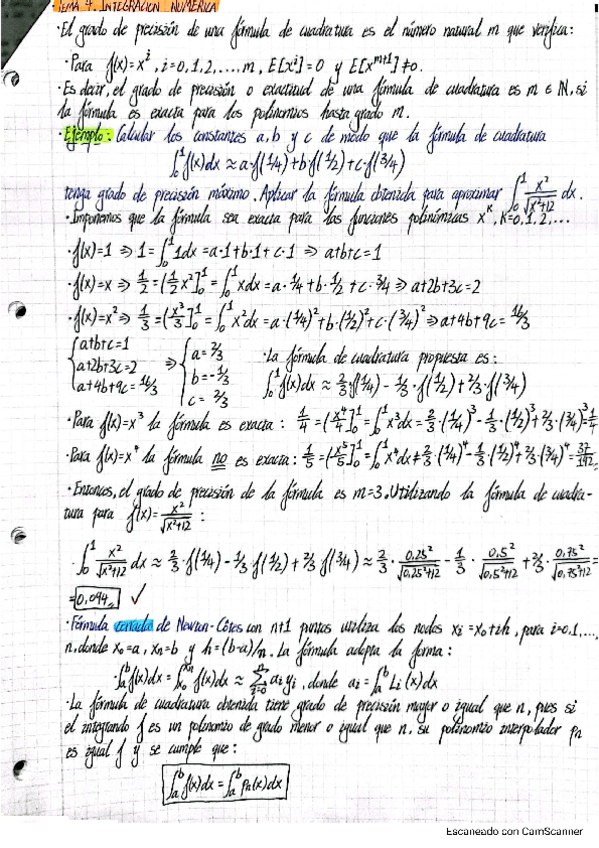 TEMA 7. INTEGRACIÓN NUMÉRICA
·El grado de precisión de una fórmula de cuadratura es el número natural m que verifica:
·Para f(x)=xⁱ, i=0,1,2,...,m, E[xⁱ]=0 y E[xᵐ⁺¹]≠0.
·Es decir, el grado de precisión o exactitud de una fórmula de cuadratura es m∈ℕ, si
la fórmula es exacta para los polinomios hasta grado m.
·Ejemplo: Calcular los constantes a, b y c de modo que la fórmula de cuadratura
∫₀¹f(x)dx ≈ a·f(1/4)+b·f(1/2)+c·f(3/4)
tenga grado de precisión máximo. Aplicar la fórmula obtenida para aproximar ∫₀¹ x²/√(x²+12) dx.
·Imponemos que la fórmula sea exacta para las funciones polinómicas xᴷ, K=0,1,2,...
·f(x)=1 ⇒ 1=∫₀¹1dx=a·1+b·1+c·1 ⇒ a+b+c=1
·f(x)=x ⇒ 1/2=(1/2 x²]₀¹=∫₀¹xdx=a·1/4+b·1/2+c·3/4 ⇒ a+2b+3c=2
·f(x)=x² ⇒ 1/3=(x³/3]₀¹=∫₀¹x²dx=a·(1/4)²+b·(1/2)²+c·(3/4)² ⇒ a+4b+9c=16/3
{a+b+c=1 a+2b+3c=2 a+4b+9c=16/3 ⇒ {a=2/3 b=-1/3 c=2/3 ·La fórmula de cuadratura propuesta es:
∫₀¹f(x)dx ≈ 2/3·f(1/4)-1/3·f(1/2)+2/3·f(3/4)
·Para f(x)=x³ la fórmula es exacta: 1/4=(x⁴/4]₀¹=∫₀¹x³dx=2/3·(1/4)³-1/3·(1/2)³+2/3·(3/4)³=1/4
·Para f(x)=x⁴ la fórmula no es exacta: 1/5=(x⁵/5]₀¹=∫₀¹x⁴dx≠2/3·(1/4)⁴-1/3·(1/2)⁴+2/3·(3/4)⁴=37/192
·Entonces, el grado de precisión de la fórmula es m=3. Utilizando la fórmula de cuadra-
tura para f(x)=x²/√(x²+12):
·∫₀¹ x²/√(x²+12) dx ≈ 2/3·f(1/4)-1/3·f(1/2)+2/3·f(3/4) ≈ 2/3·0,25²/√(0,25²+12) - 1/3·0,5²/√(0,5²+12) + 2/3·0,75²/√(0,75²+12) =
=0,094 ✓
·Fórmula cerrada de Newton-Côtes con n+1 puntos utiliza los nodos xᵢ=x₀+ih, para i=0,1,...,
n, donde x₀=a, xₙ=b y h=(b-a)/n. La fórmula adopta la forma:
·∫ₐᵇf(x)dx=∫ₓ₀ˣⁿ f(x)dx ≈ Σᵢ₌₀ⁿ aᵢyᵢ, donde aᵢ=∫ₐᵇLᵢ(x)dx
·La fórmula de cuadratura obtenida tiene grado de precisión mayor o igual que n, pues si
el integrando f es un polinomio de grado menor o igual que n, su polinomio interpolador pₙ
es igual f y se cumple que:
∫ₐᵇf(x)dx=∫ₐᵇpₙ(x)dx
Escaneado con CamScanner